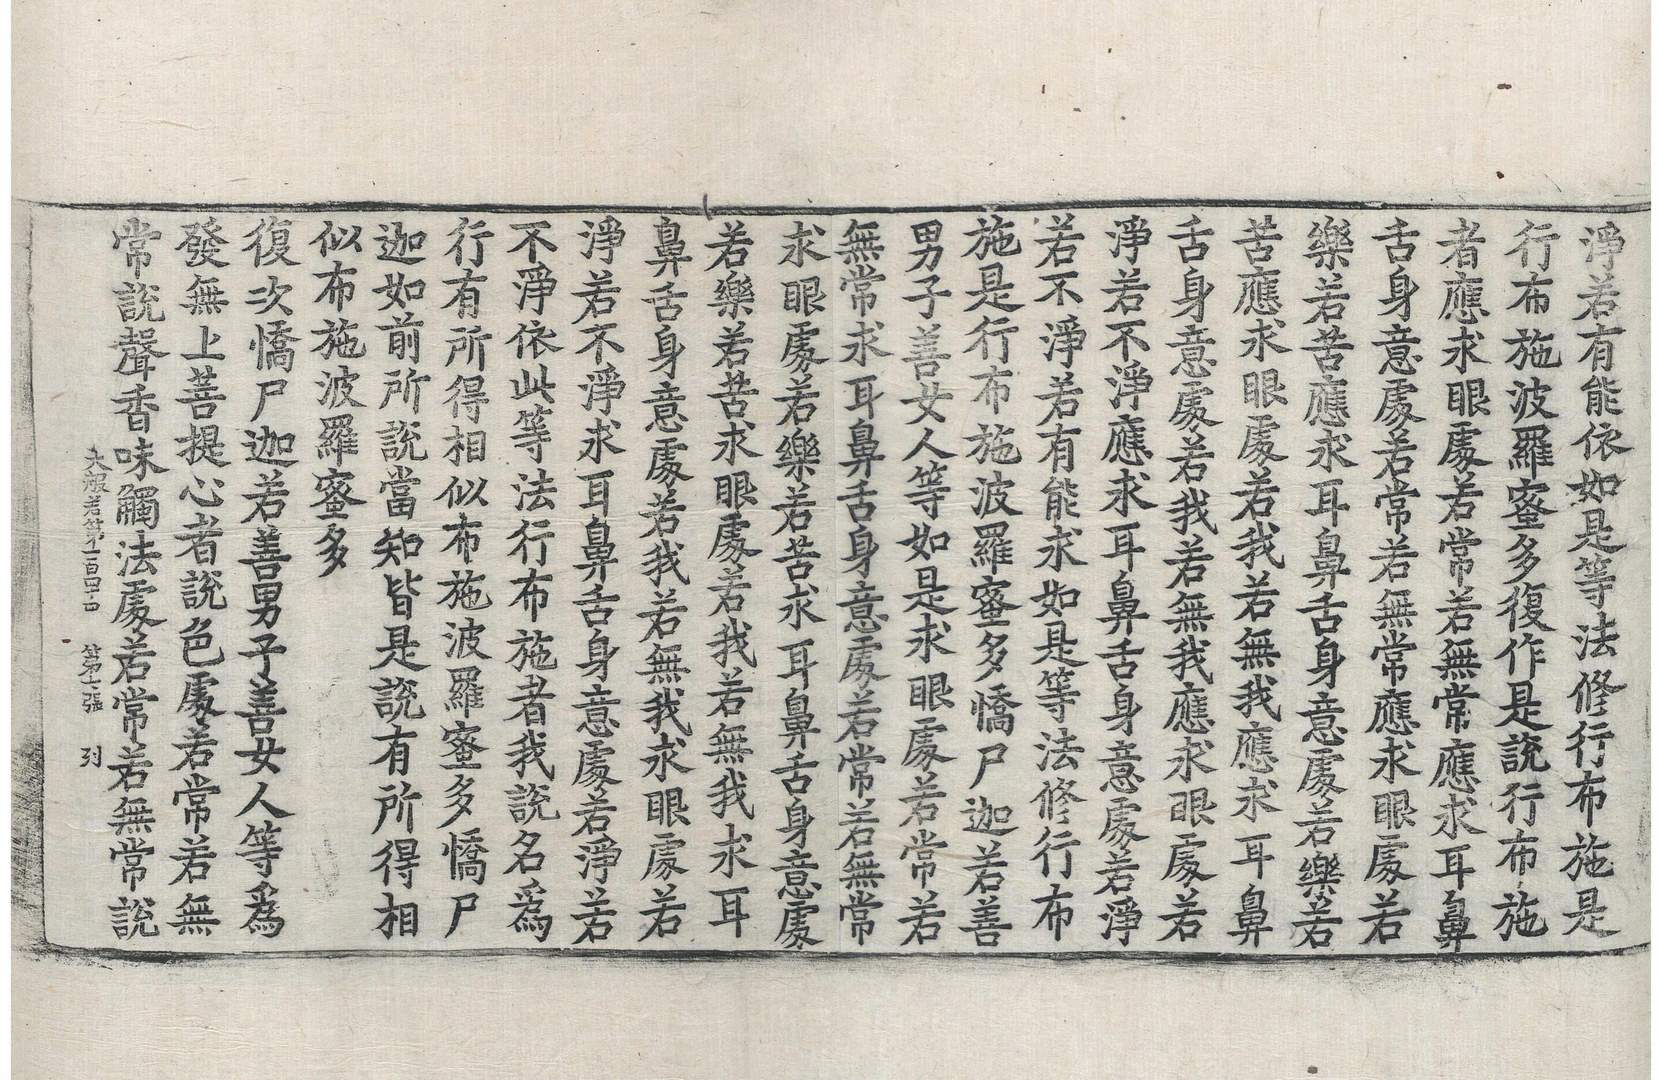 淨若有能依如是等法修行布施是
行布施波羅蜜多復作是說行布施
者應求眼處若常若無常應求耳鼻
舌身意處若常若無常應求眼處若
樂若苦應求耳鼻舌身意處若樂若
苦應求眼處若我若無我應求耳鼻
舌身意處若我若無我應求眼處若
淨若不淨應求耳鼻舌身意處若淨
若不淨若有能求如是等法修行布
施是行布施波羅蜜多憍尸迦若善
男子善女人等如是求眼處若常若
無常求耳鼻舌身意處若常若無常
求眼處若樂若苦求耳鼻舌身意處
若樂若苦求眼處若我若無我求耳
鼻舌身意處若我若無我求眼處若
淨若不淨求耳鼻舌身意處若淨若
不淨依此等法行布施者我說名爲
行有所得相似布施波羅蜜多憍尸
迦如前所說當知皆是說有所得相
似布施波羅蜜多
復次憍尸迦若善男子善女人等爲
發無上菩提心者說色處若常若無
常說聲香味觸法處若常若無常說
大般若第一百四十 第二張 列